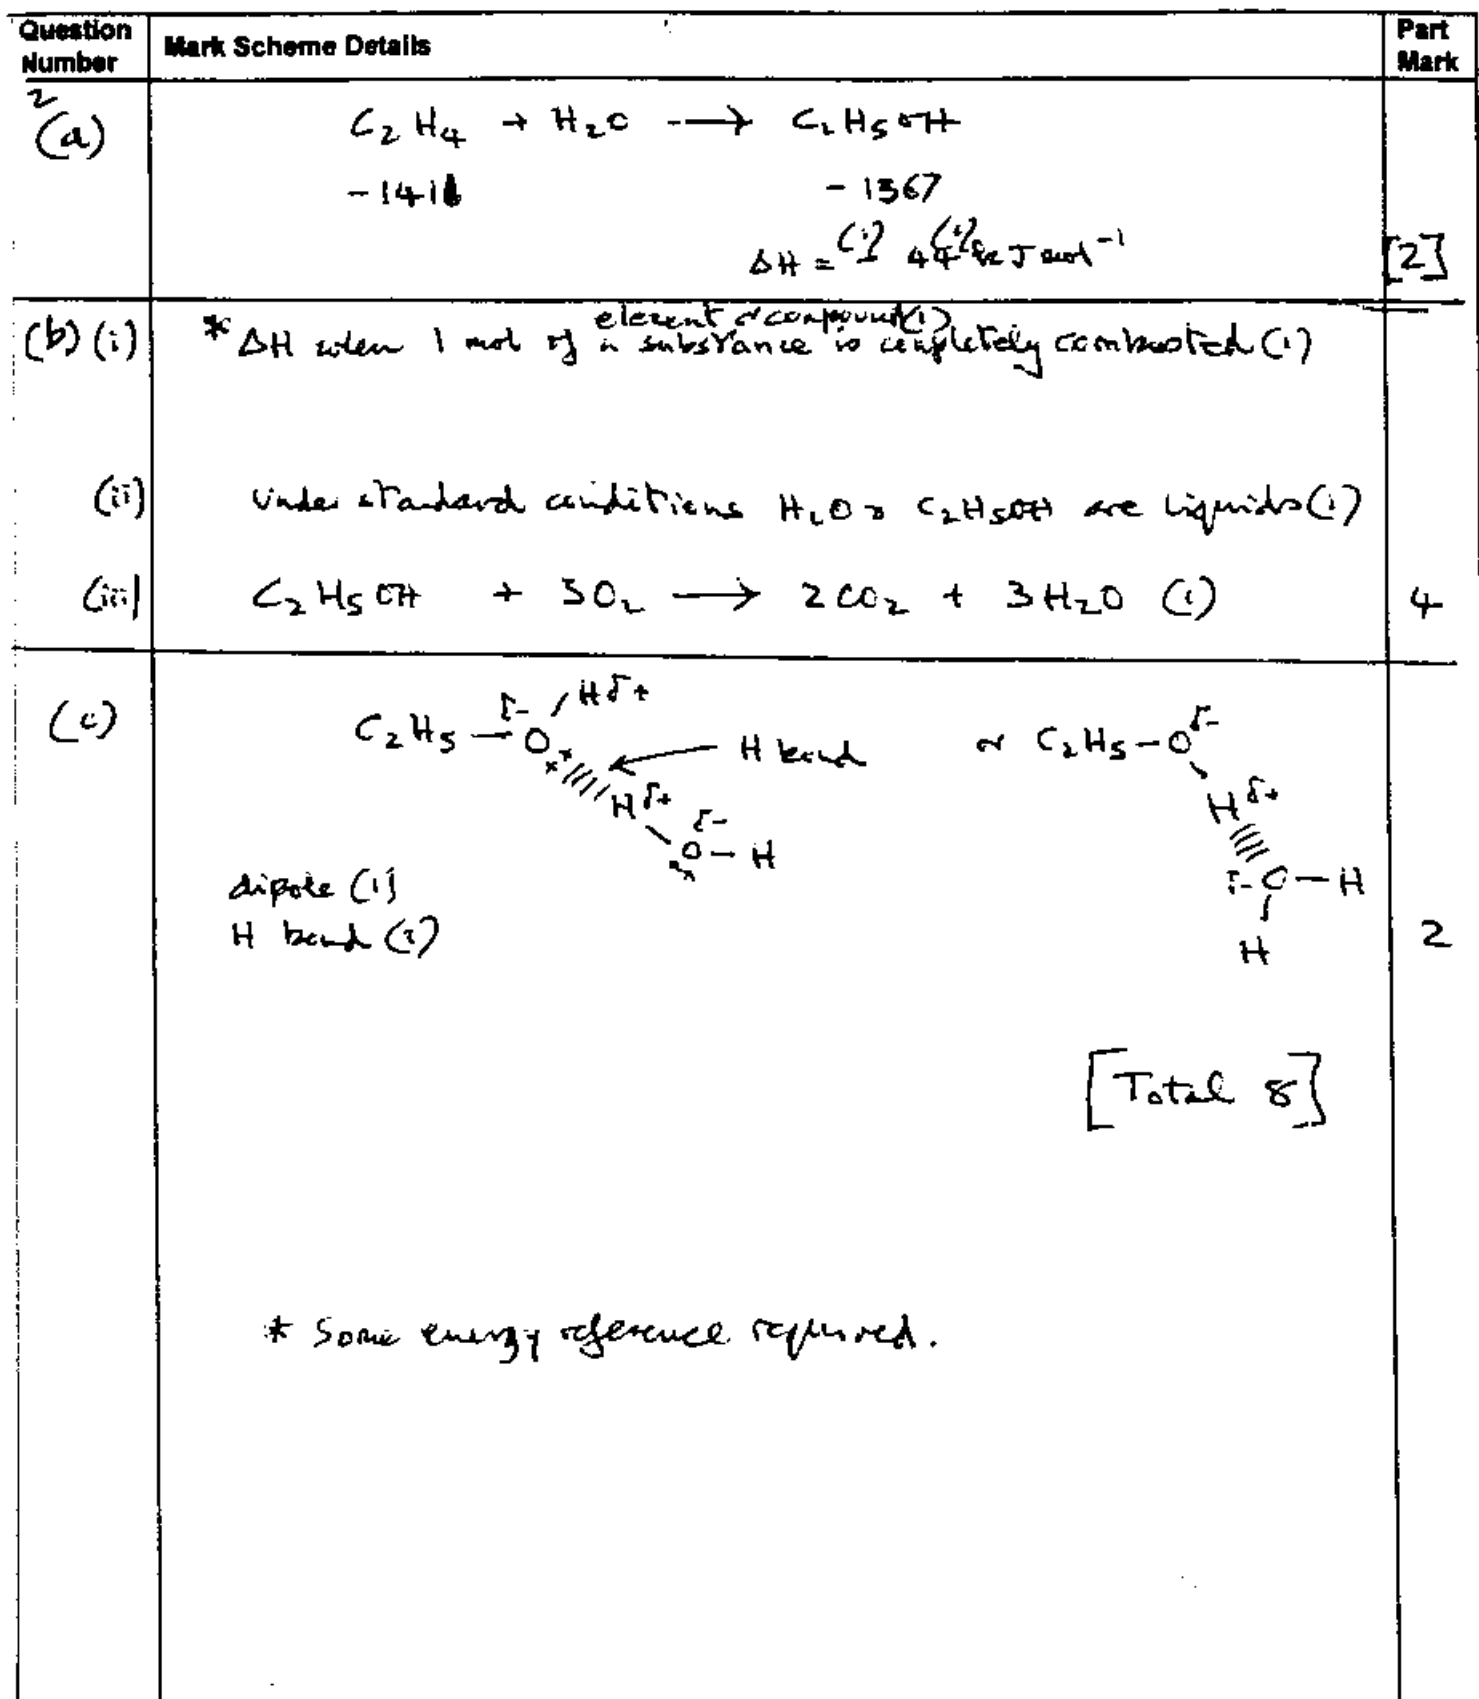 Question Number | Mark Scheme Details | Part Mark
2
(a) C₂H₄ + H₂O → C₂H₅OH
-1411 -1367
ΔH = (1) - 44 (1) kJ mol⁻¹ [2]
element or compound (1)
(b) (i) * ΔH when 1 mol of a substance is completely combusted (1)
(ii) Under standard conditions H₂O & C₂H₅OH are liquids (1)
(iii) C₂H₅OH + 3O₂ → 2CO₂ + 3H₂O (1) 4
(c) C₂H₅ — O δ- H δ+ H bond or C₂H₅ — O δ-
H δ+ H δ+
O δ- — H
dipole (1) δ- O — H
H bond (1) H 2
[Total 8]
* Some energy reference required.